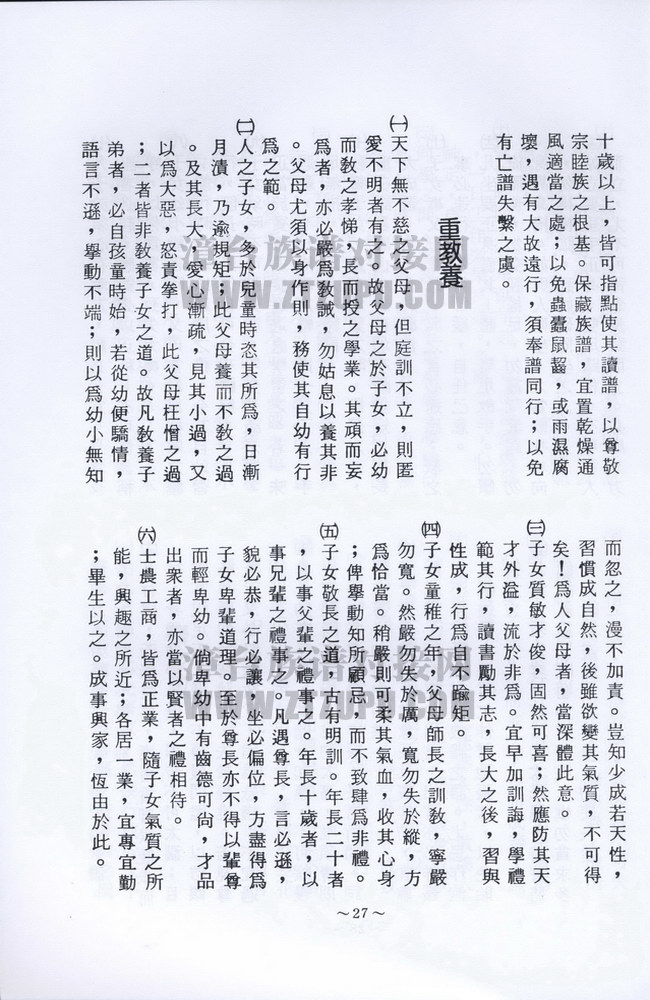 十歲以上，皆可指點使其讀譜，以尊敬
宗睦族之根基。保藏族譜，宜置乾燥通
風適當之處；以免蟲蠹鼠齧，或雨濕腐
壞，遇有大故遠行，須奉譜同行；以免
有亡譜失繫之虞。
重教養
㈠天下無不慈之父母，但庭訓不立，則匿
愛不明者有之。故父母之於子女，必幼
而敎之孝悌，長而授之學業。其頑而妄
爲者，亦必嚴爲敎誡，勿姑息以養其非
。父母尤須以身作則，務使其自幼有行
爲之範。
㈡人之子女，多於兒童時恣其所爲，日漸
月漬，乃逾規矩；此父母養而不敎之過
。及其長大，愛心漸疏，見其小過，又
以爲大惡，怒責拳打，此父母枉憎之過
；二者皆非敎養子女之道。故凡敎養子
弟者，必自孩童時始，若從幼便驕情，
語言不遜，擧動不端；則以爲幼小無知
而忽之，漫不加責。豈知少成若天性，
習慣成自然，後雖欲變其氣質，不可得
矣！爲人父母者，當深體此意。
㈢子女質敏才俊，固然可喜；然應防其天
才外溢，流於非爲。宜早加訓誨，學禮
範其行，讀書勵其志，長大之後，習與
性成，行爲自不踰矩。
㈣子女童稚之年，父母師長之訓敎，寧嚴
勿寬。然嚴勿失於厲，寬勿失於縱，方
爲恰當。稍嚴則可柔其氣血，收其心身
；俾擧動知所顧忌，而不致肆爲非禮。
㈤子女敬長之道，古有明訓。年長二十者
，以事父輩之禮事之。年長十歲者，以
事兄輩之禮事之。凡遇尊長，言必遜，
貌必恭，行必讓，坐必偏位，方盡得爲
子女卑輩道理。至於尊長亦不得以輩尊
而輕卑幼。倘卑幼中有齒德可尙，才品
出衆者，亦當以賢者之禮相待。
㈥士農工商，皆爲正業，隨子女氣質之所
能，興趣之所近；各居一業，宜專宜勤
；畢生以之。成事興家，恆由於此。
～27～
漳台族谱对接网
WWW.ZTZUPU.COM
漳台族谱对接网
WWW.ZTZUPU.COM